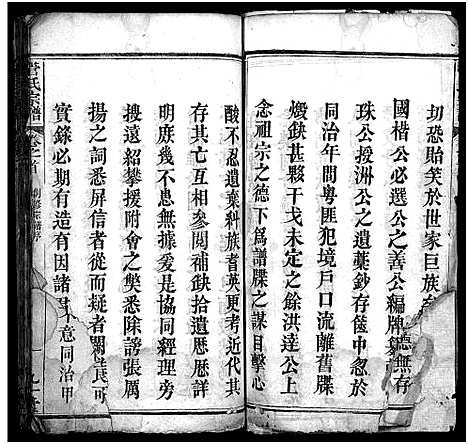 切恐貽笑於世家巨族
國楷公必選公之善公編牌
德無存
珠公授洲公之遺藁鈔存箇中忽於
同治年間粵匪犯境戶口流離舊牒
燬缺干戈未定之餘洪達公上
念祖宗之德下爲譜牒之謀目擊心
酸不忍遺棄科族耆英更考近代其
存其亡互相參閱補缺拾遺厯厯詳
明庶幾不患無據爰是協同經理旁
搜遠紹攀援附會之獘悉除謗張厲
揚之詞悉屏信者從而疑者闕民可
實錄必期有造有因諸
意同治甲
管氏宗譜
卷之首
一